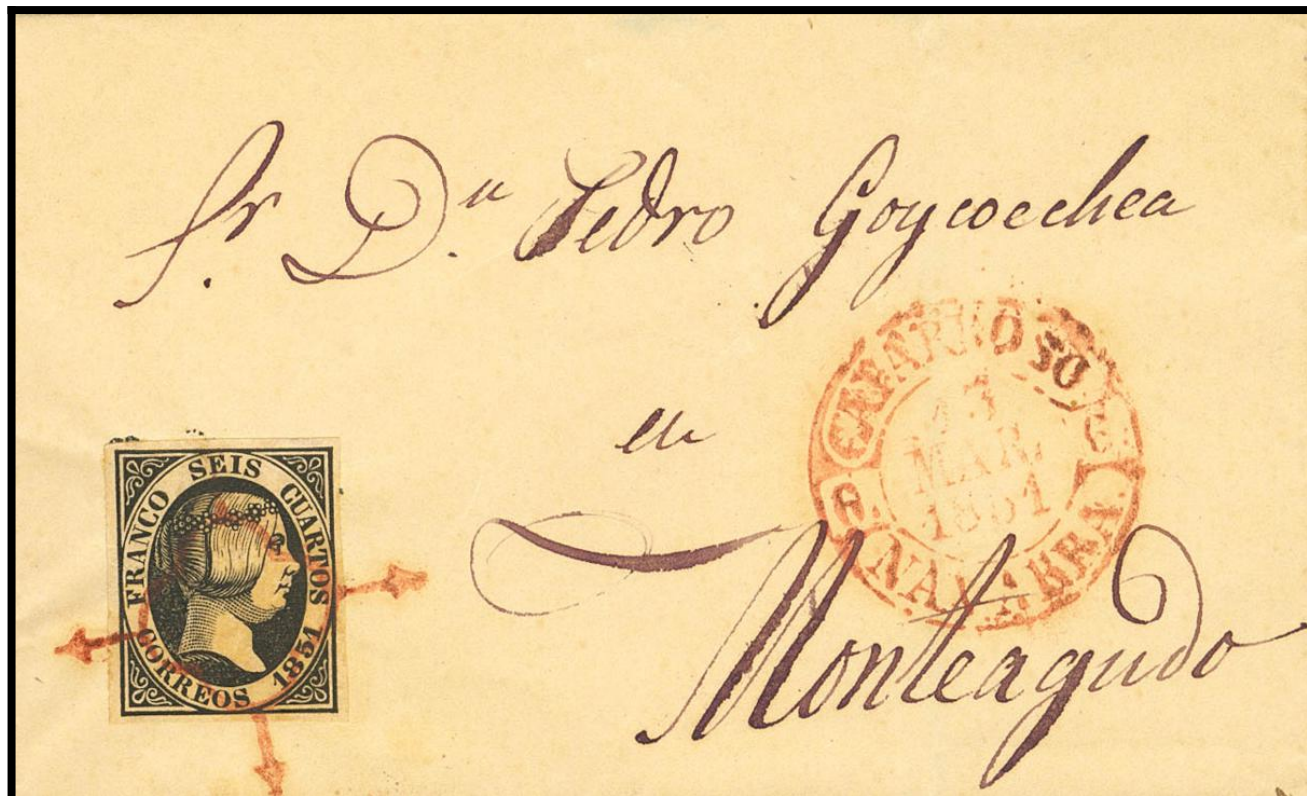 Sr. Dn. Pedro Goycoechea
en
Monteagudo
CAPARROSO
13
MAR.
1851
NAVARRA.
FRANCO SEIS CUARTOS
CORREOS 1851